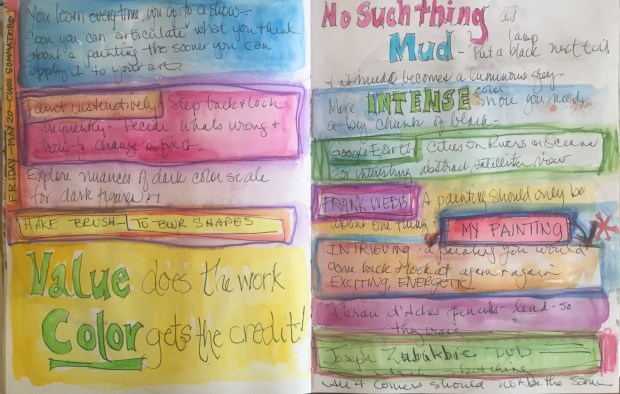 FRIDAY - MAY 20 - CLASS
You learn everytime you go to a show-
Soon you can articulate what you think
about a painting the sooner you can
apply it to your art
Step back & look
frequently - Decide whats wrong &
how to change or fix it.
Explore nuances of dark color scale
for dark figures
HAKE BRUSH - TO BLUR SHAPES
Value does the work
Color gets the credit!
No Such thing as
Mud - Put a black next to it
& it mud becomes a luminous gray
More INTENSE color you need
a big chunk of black -
Google Earth Cities or Rivers or Oceans
for interesting abstract satellite view
FRANK WEBB A painting should only be
about one thing
MY PAINTING
INTRIGUING a painting you would
come back & look at again & again
EXCITING, ENERGETIC
Caran d'Ache pencils - lead - so
Joseph Zubukvic DVD
All 4 Corners should not be the same